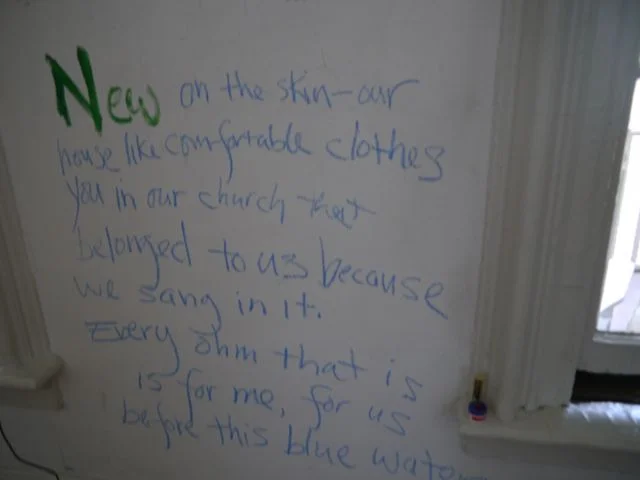 New on the skin-our
house like comfortable clothes
you in our church that
belonged to us because
we sang in it.
Every ohm that is
is for me, for us
before this blue water